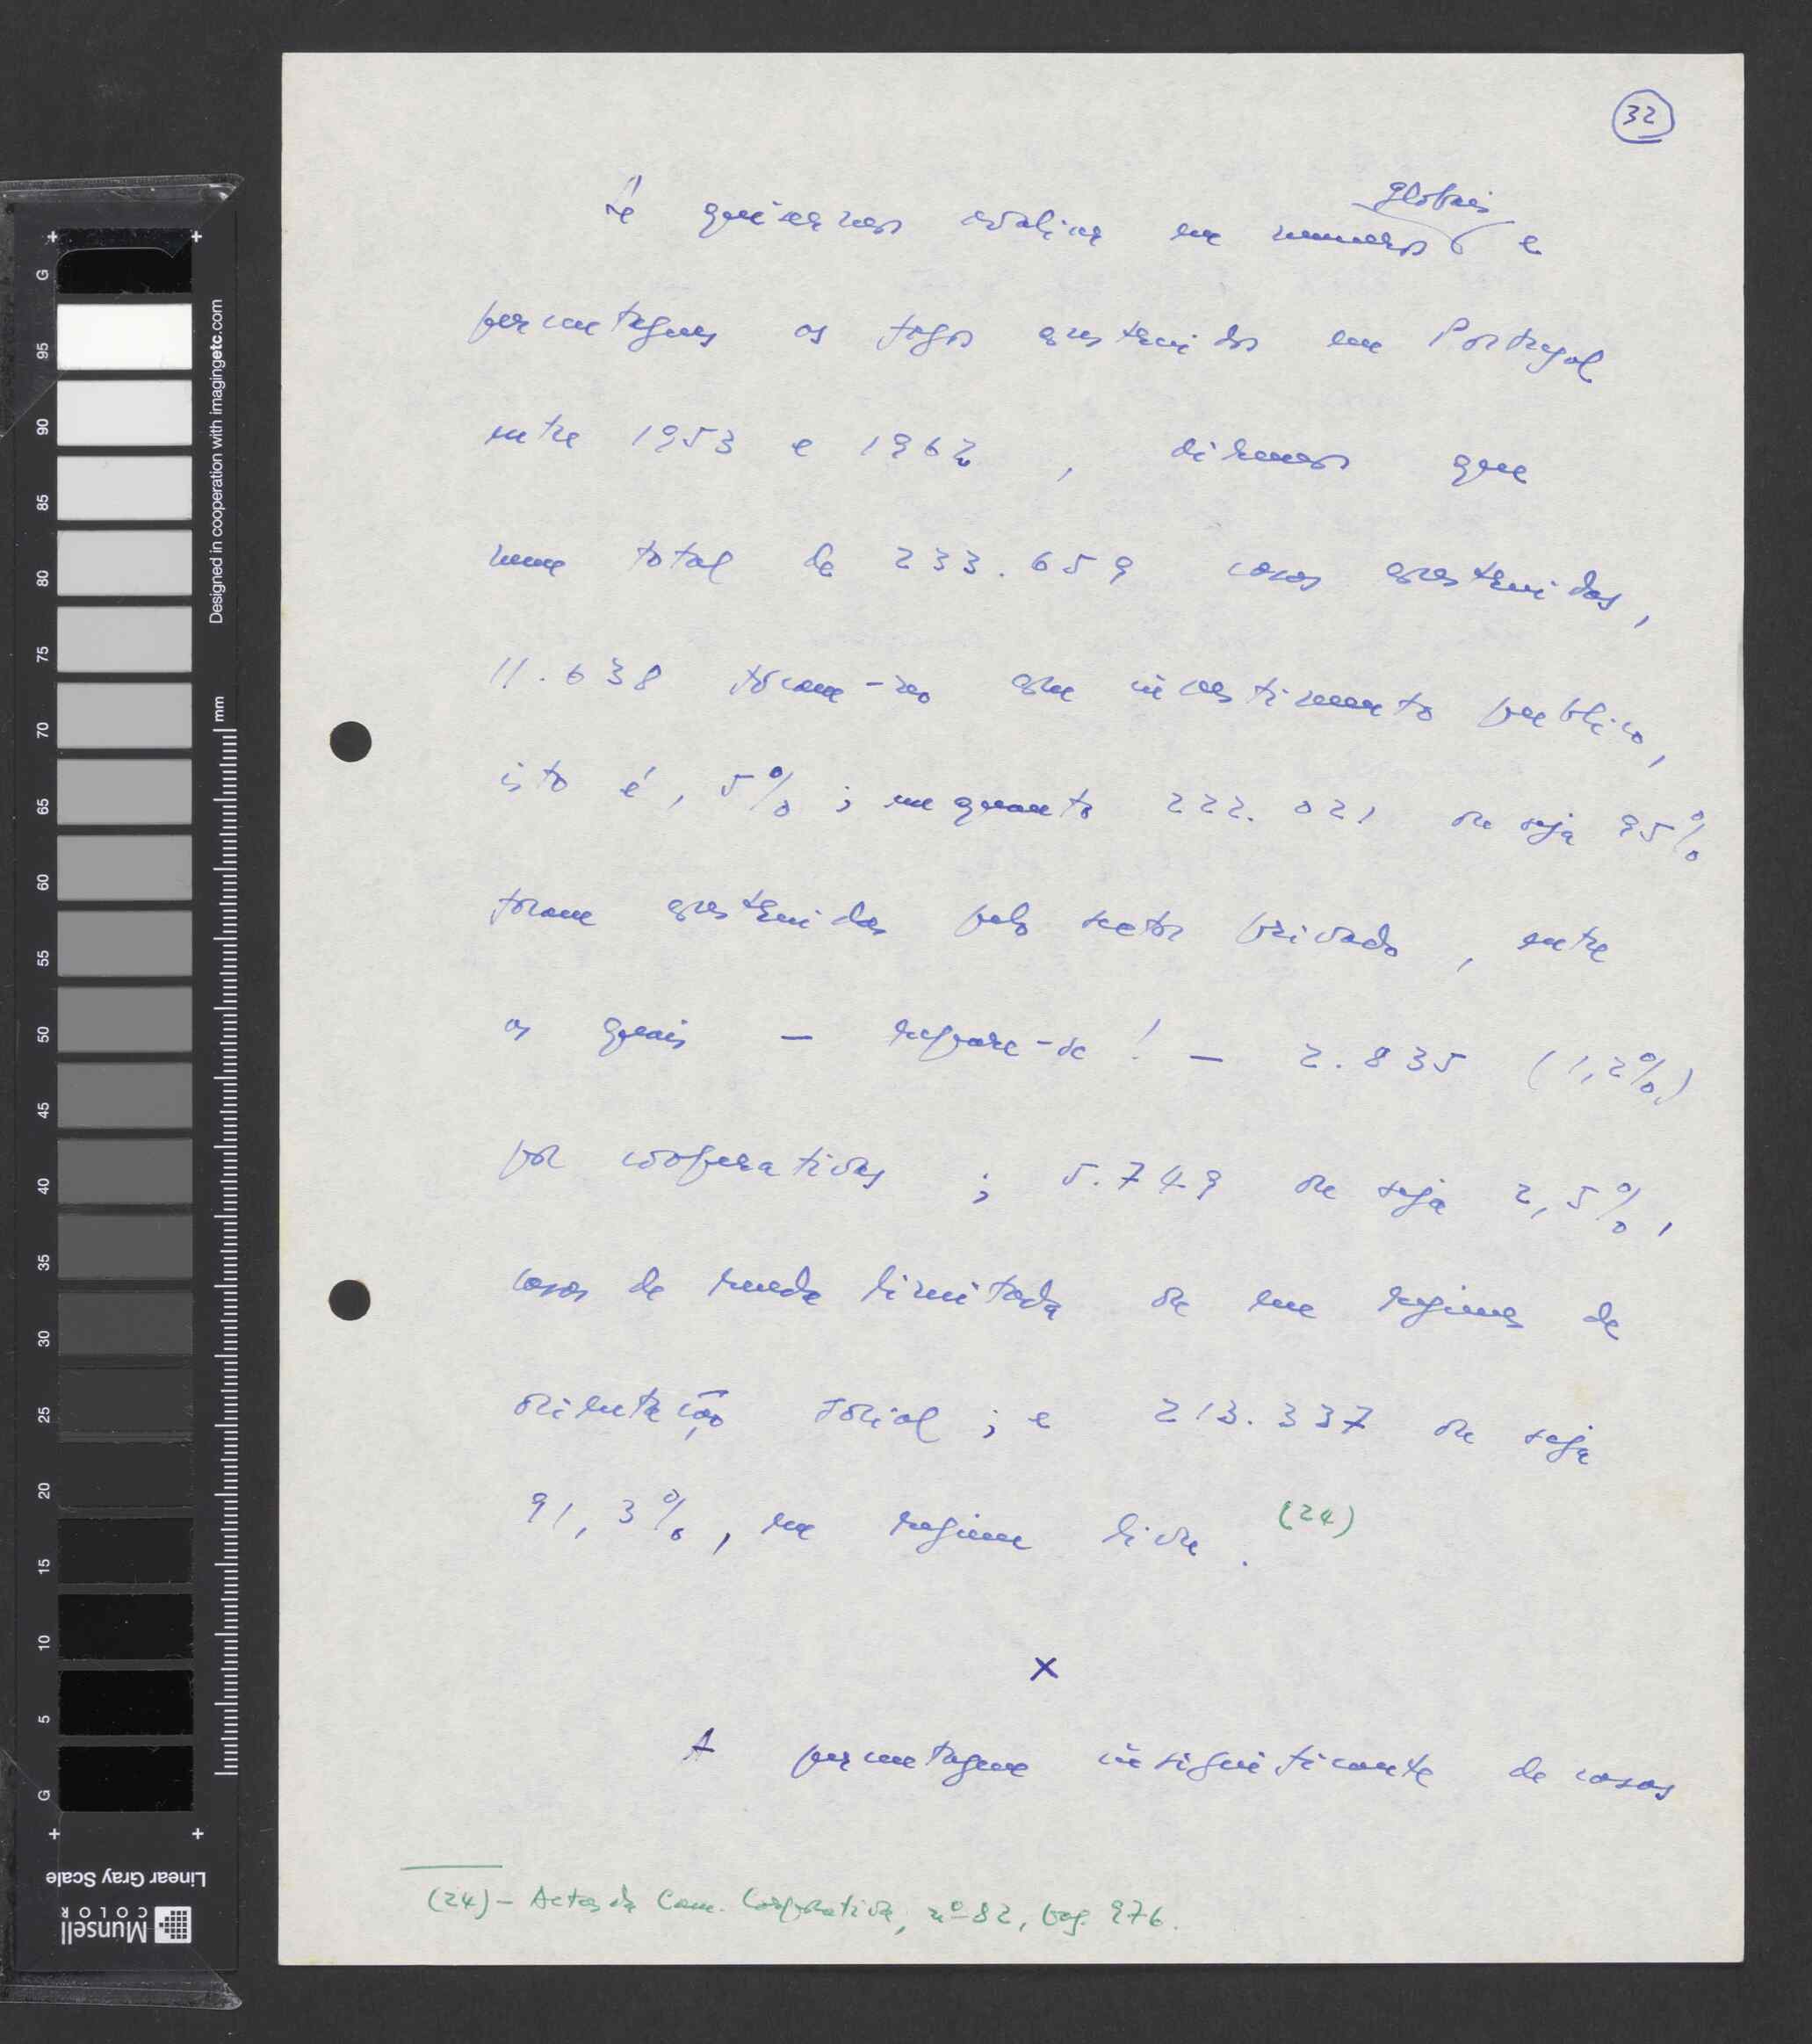 32
Se quisermos avaliar em numeros globais e
percentagens os fogos construidos em Portugal
entre 1953 e 1962, diremos que
num total de 233.659 casas construidas,
11.638 foram-no com investimento publico,
isto é, 5%; enquanto 222.021 ou seja 95%
foram construidas pelo sector privado, entre
as quais — repare-se! — 2.835 (1,2%)
por cooperativas; 5.749 ou seja 2,5%,
casas de renda limitada ou em regimes de
orientação social; e 213.337 ou seja
91,3%, em regime livre. (24)
x
A percentagem insignificante de casas
(24) - Actas da Cam. Corporativa, nº 82, pag. 976.
G
95
90
85
80
75
70
65
60
55
50
45
40
35
30
25
20
15
10
5
G
Designed in cooperation with imagingetc.com
mm
Linear Gray Scale
Munsell
COLOR